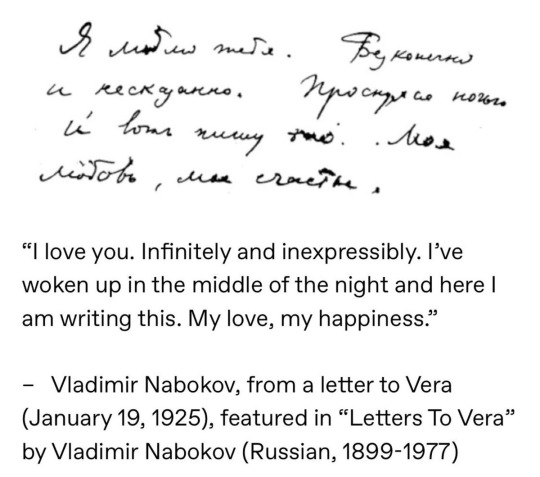 Я люблю тебя. Бесконечно
и несказанно. Проснулся ночью
и вот пишу это. Моя
любовь, мое счастье.
“I love you. Infinitely and inexpressibly. I’ve
woken up in the middle of the night and here I
am writing this. My love, my happiness.”
– Vladimir Nabokov, from a letter to Vera
(January 19, 1925), featured in “Letters To Vera”
by Vladimir Nabokov (Russian, 1899-1977)